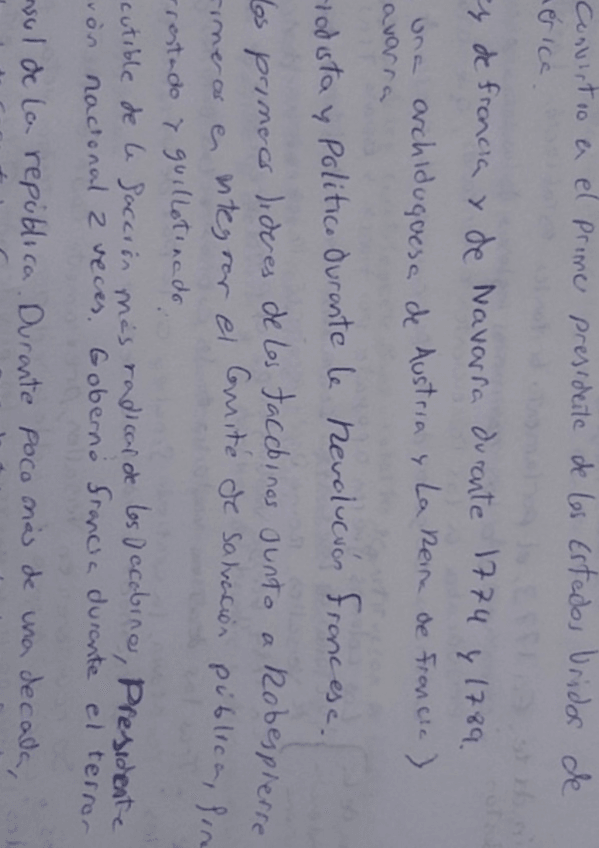 convirtio a el primer presidente de los Estados Unidos de
érica.
y de francia y de Navarra durante 1774 y 1789.
una archiduquesa de Austria y La Reina de Francia)
avarra
iodista y Político Durante la Revolución francesa.
los primeros lideres de los Jacobinos Junto a Robespierre
imeros en integrar el Comité de Salvación pública, fin
rrestado y guillotinado
cutible de la facción más radical de los Jacobinos, Presidente
ión nacional 2 veces. Gobernó francia durante el terror
nsul de la república. Durante poco más de una decada,